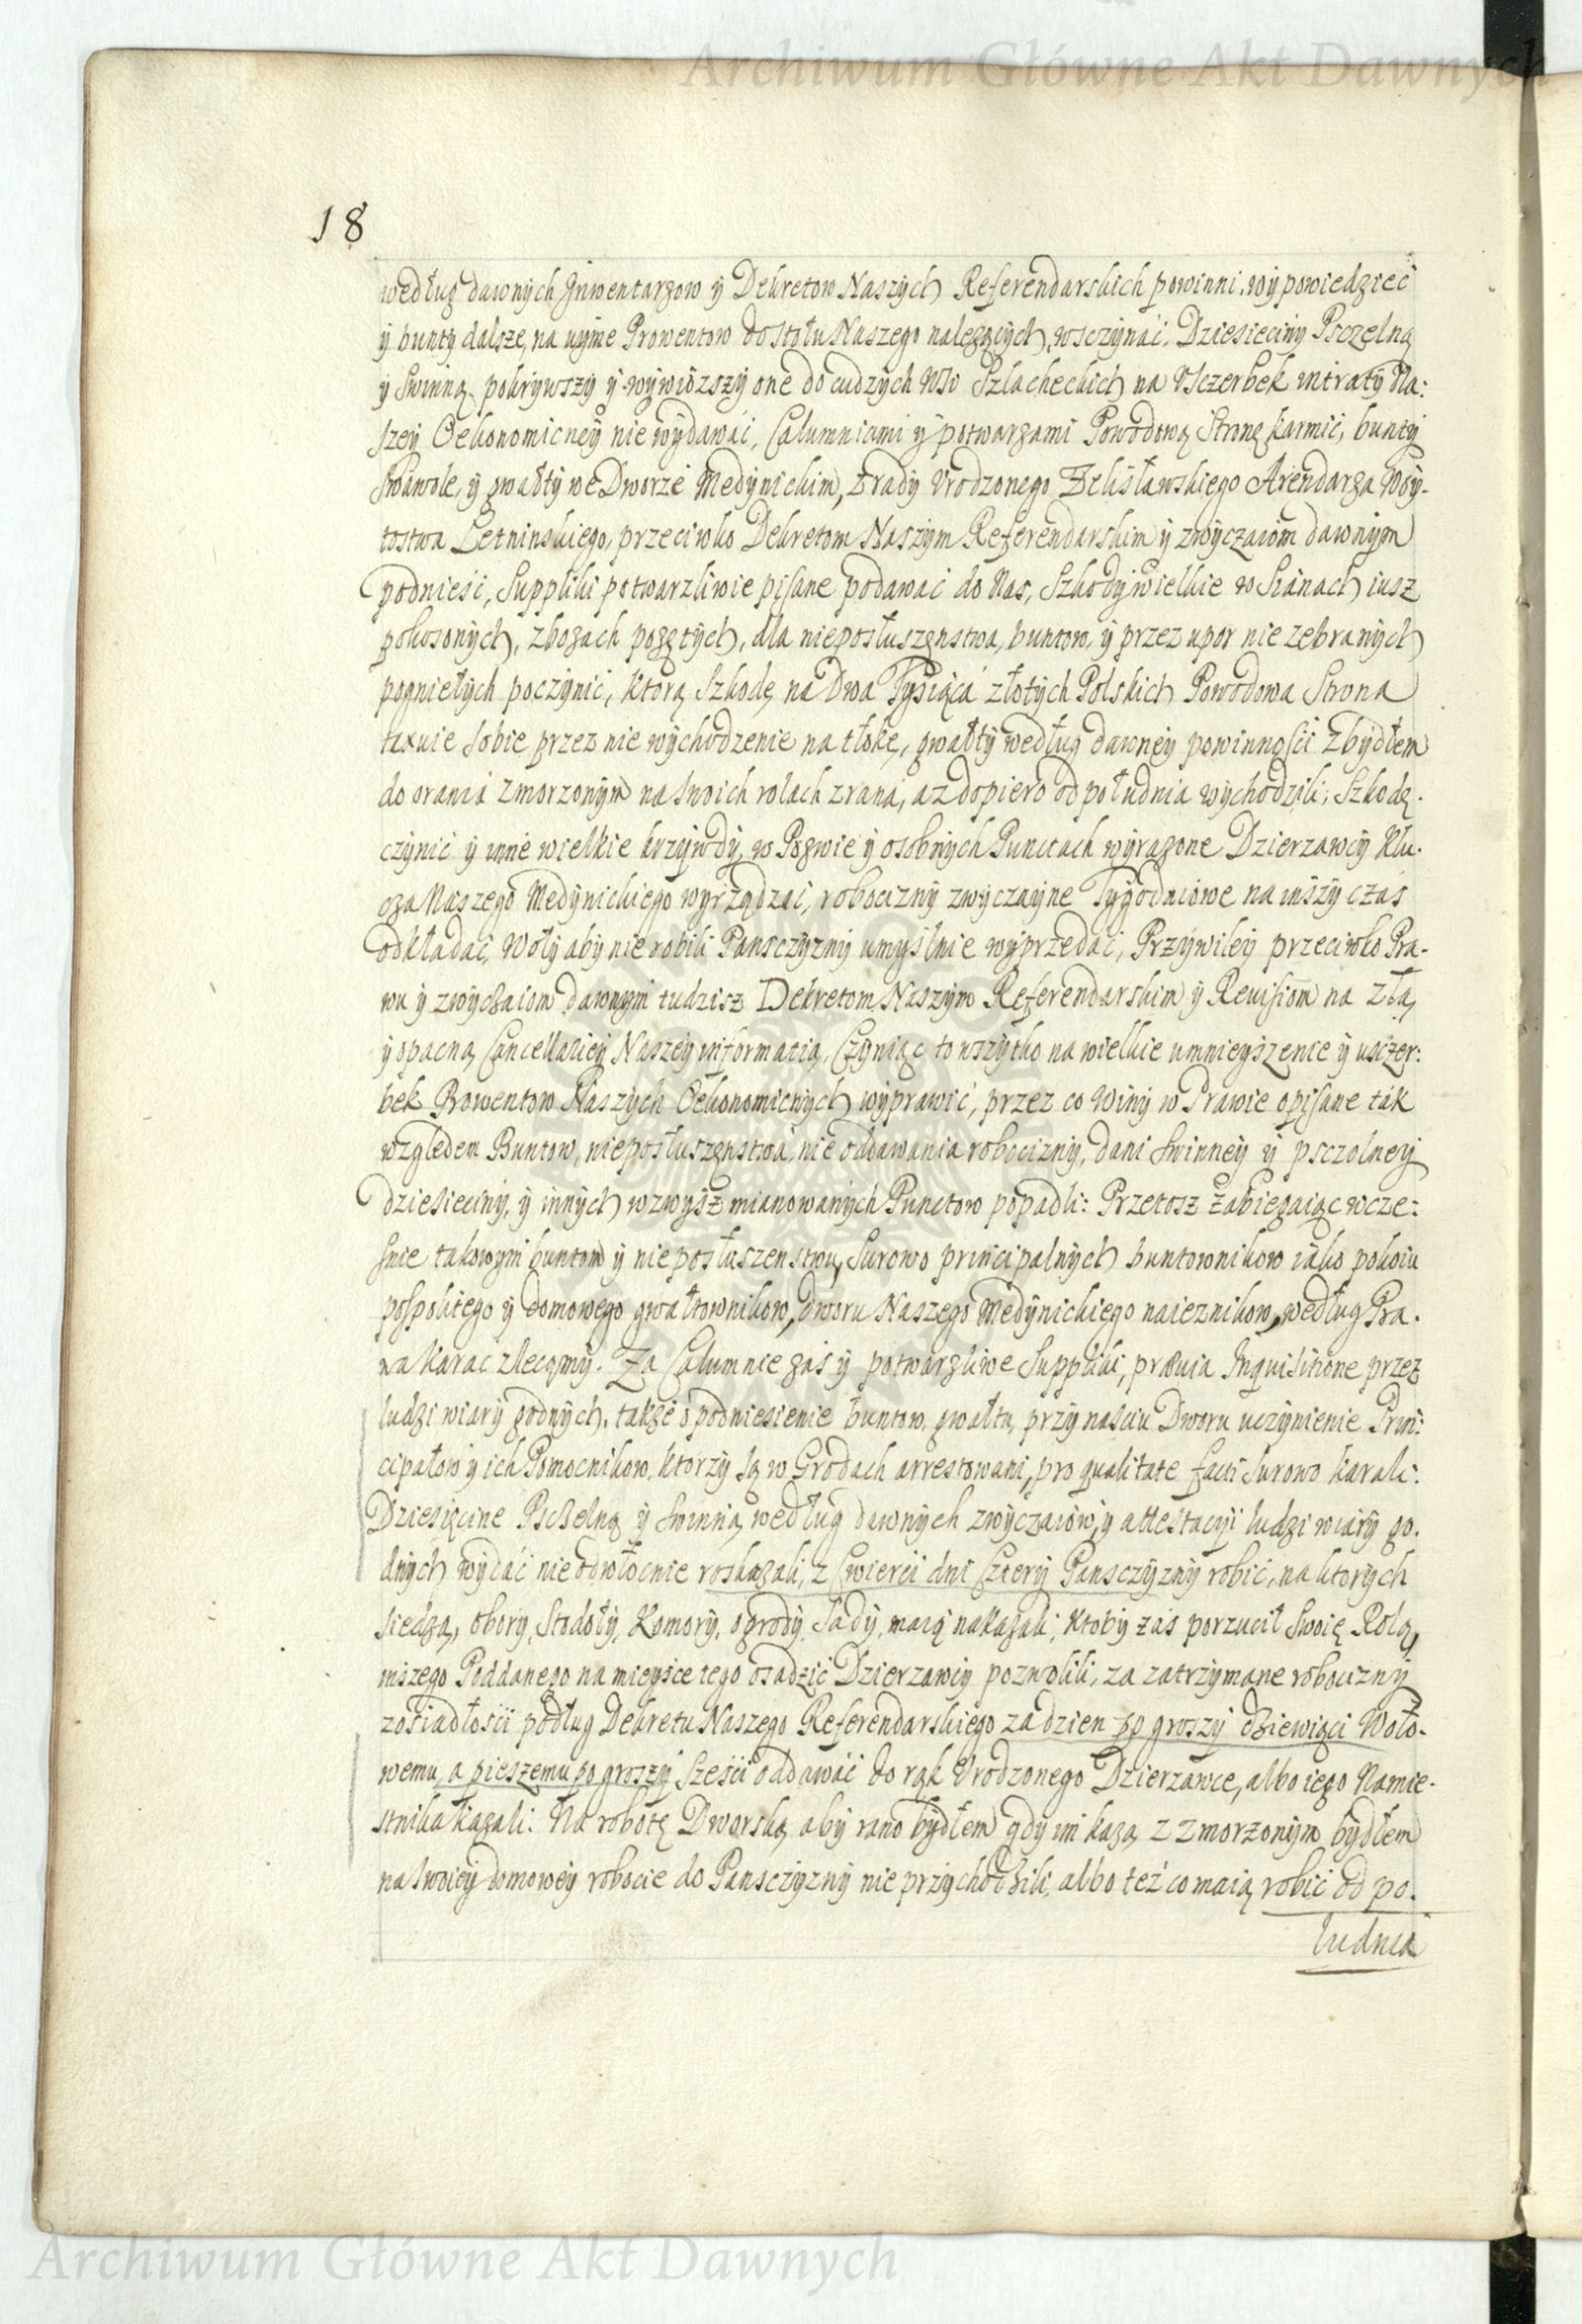 Archiwum Główne Akt Dawnych
18
według dawnych Inwentarzow ÿ Dekretow Naszych Referendarskich powinni, wÿpowiedzieć
ÿ bunty dalsze, na uÿmę Prowentow do stołu Naszego nalezących, wsczÿnać, Dziesiecinÿ Psczelną
ÿ Swinną, pokrÿwszÿ ÿ wÿwiozszÿ one do cudzych Wśi Szlacheckich na Vsczerbek intratÿ Na:
szeÿ Oekonomicneÿ nie wÿdawać, Calumniami ÿ potwarzami Powodową Stronę karmić, buntÿ
Swawole, ÿ gwałtÿ we Dworze Medÿnickim, z radÿ Vrodzonego Zelisławskiego Arendarza Woÿ-
tostwa Letninskiego, przeciwko Dekretom Naszÿm Referendarskim ÿ zwÿczaiom dawnÿm
podnieść, Suppliki potwarzliwie pisane podawać do Nas, Szkodÿ wielkie w Sianach iusz
pokosonÿch, zbozach pozętÿch, dla nieposłuszenstwa, buntow, ÿ przez upor nie zebranÿch
pogniełÿch poczÿnić, ktorą Szkodę na Dwa Tÿsiąca złotÿch Polskich Powodowa Strona
taxuie sobie przez nie wÿchodzenie na tłokę, gwałtÿ według dawneÿ powinności z bÿdłem
do orania zmorzonÿm na swoich rolach z rana, az dopiero od południa wÿchodzili, Szkodę.
czÿnić ÿ inne wielkie krzÿwdÿ, w Pozwie ÿ osobnÿch Punctach wÿrazone Dzierzawcÿ Klu.
cza Naszego Medÿnickiego wÿrządzać, robociznÿ zwÿczaÿne Tÿgodniowe na inszÿ czas
odkładać, Wołÿ abÿ nie robili Pansczÿznÿ umÿslnie wÿprzedać, Przÿwileÿ przeciwko Pra-
wu ÿ zwÿczaiom dawnÿm tudzisz Dekretom Naszÿm Referendarskim ÿ Reuisiom na złą,
ÿ opaczną Cancellarieÿ Naszeÿ informatią, Czÿniąc to wszÿtko na wielkie umnieÿszenie ÿ usczer:
bek Prowentow Naszÿch Oekonomicnÿch wÿprawić, przez co Winÿ w Prawie opisane ták
względem Buntow, nieposłuszenstwa, nie oddawania robociznÿ, dani Swinneÿ ÿ psczolneÿ
dziesiecinÿ, ÿ innÿch wzwÿsz mianowanÿch Punctow popadli: Przetosz zabiegaiąc wcze:
snie takowÿm buntom ÿ nieposłuszenstwu, Surowo principalnÿch buntownikow iako pokoiu
pospolitego ÿ domowego gwałtownikow, Dworu Naszego Medÿnickiego naieznikow, według Pra.
wa karac zlecamÿ. Za Calumnie zas ÿ potwarzliwe Suppliki, præuia Inquisitione przez
ludzi wiarÿ godnÿch, takze o podniesienie buntow, gwałtu, przÿ nasciu Dworu uczÿnienie Prin:
cipałow ÿ ich Pomocnikow, ktorzÿ są w Grodach arrestowani, pro qualitate facti Surowo karali:
Dziesięcine Psczelną ÿ Swinną, według dawnÿch zwÿczaiow, ÿ attestacÿi ludzi wiarÿ go.
dnÿch wÿdać nie odwłocnie roskazali, z Cwierci dni Czterÿ Pansczÿznÿ robić, na ktorych
siedzą, oborÿ, Stodołÿ, Komorÿ, ogrodÿ, Sadÿ, maią nakazali, ktobÿ zas porzucił Swoię Rolą,
inszego Poddanego na mieÿsce tego osadzić Dzierzawcÿ pozwolili, za zatrzÿmane robociznÿ
z osiadłosci podług Dekretu Naszego Referendarskiego za dzien po groszÿ dziewiąci Woło-
wemu, a pieszemu po groszÿ Sześci oddawać do rąk Vrodzonego Dzierzawce, albo iego Namie-
stnika kazali: Na robotę Dworską abÿ rano bÿdłem gdÿ im kazą z zmorzonÿm bÿdłem
na swoieÿ domoweÿ robocie do Pansczÿznÿ nie przÿchodzili, albo też co maią robić od po.
ludnia
Archiwum Główne Akt Dawnych